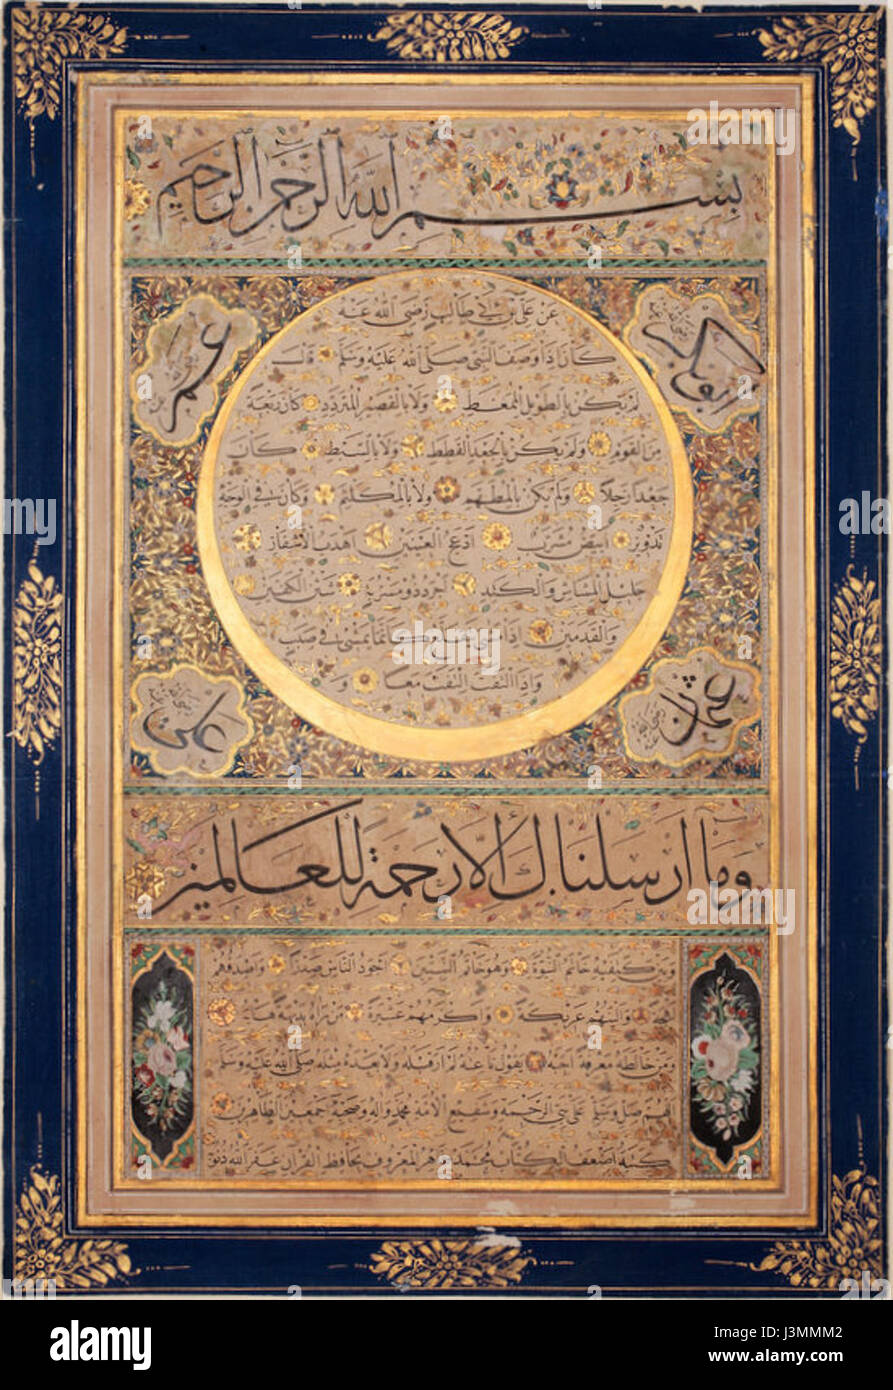 بسم الله الرحمن الرحيم
عن علي بن أبي طالب رضي الله عنه
كان إذا وصف النبي صلى الله عليه وسلم قال
لم يكن بالطويل الممغط ولا بالقصير المتردد كان ربعة
من القوم ولم يكن بالجعد القطط ولا بالسبط كان
جعدا رجلا ولم يكن بالمطهم ولا بالمكلثم وكان في الوجه
تدوير أبيض مشرب أدعج العينين أهدب الأشفار
جليل المشاش والكتد أجرد ذو مسربة شثن الكفين
والقدمين إذا مشى كأنما يمشي في صبب
وإذا التفت التفت معا و
أبو بكر
عمر
عثمان
علي
وما أرسلناك إلا رحمة للعالمين
وبين كتفيه خاتم النبوة وهو خاتم النبيين أجود الناس صدرا وأصدقهم
لهجة وألينهم عريكة وأكرمهم عشيرة من رآه بديهة هابه
ومن خالطه معرفة أحبه يقول ناعته لم أر قبله ولا بعده مثله صلى الله عليه وسلم
اللهم صل وسلم على نبي الرحمة وشفيع الأمة محمد وآله وصحبه جمعين الطاهرين
كتبه أضعف الكتاب محمد المعروف بحافظ القرآن غفر الله ذنو
alamy
Image ID: J3MMM2
www.alamy.com